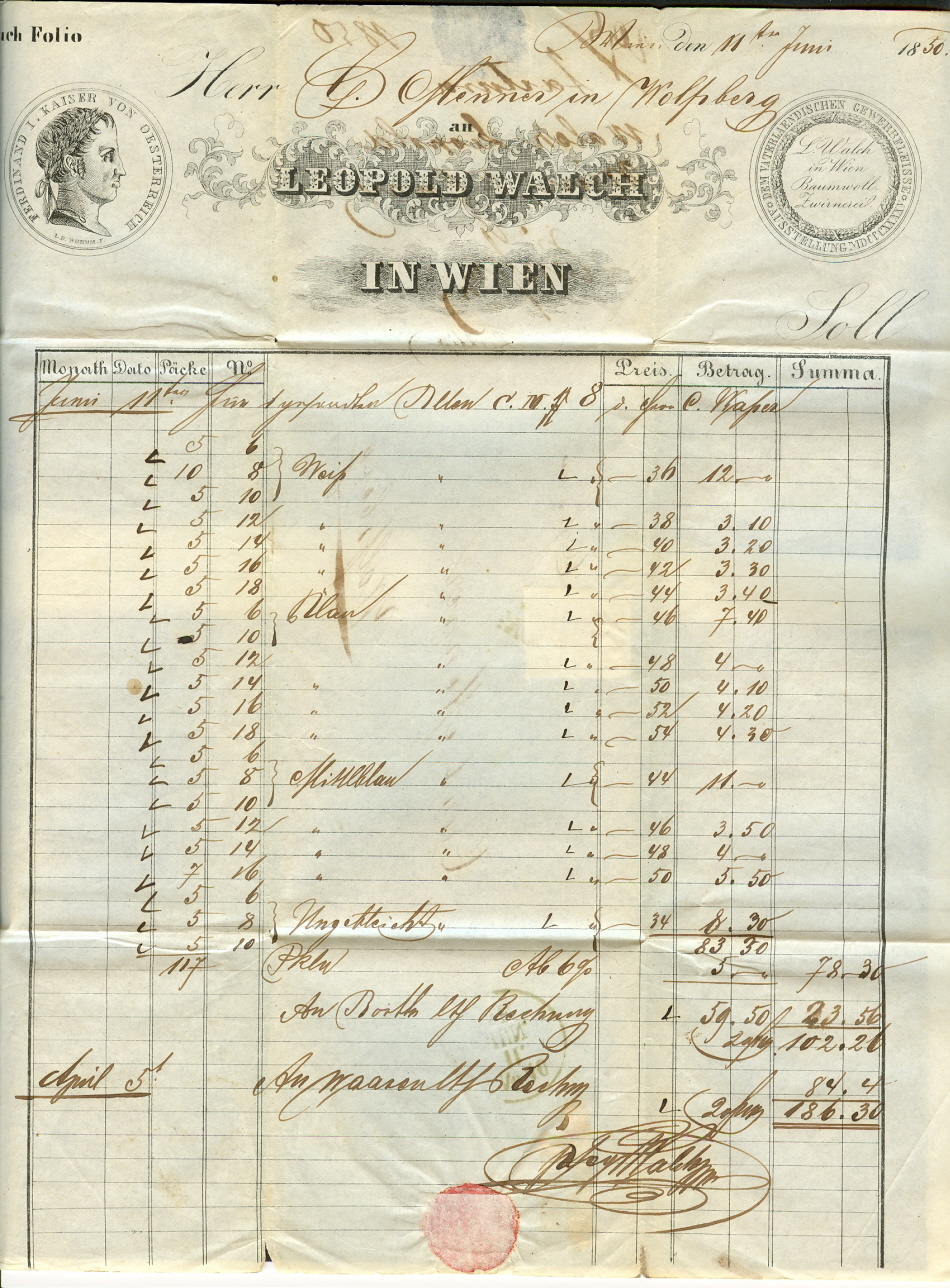 uch Folio
Wien den 11ten Juni 1850.
Herr C. Menner in Wolfsberg
an
LEOPOLD WALCH
IN WIEN
FERDINAND I. KAISER VON OESTERREICH
DEM VATERLAENDISCHEN GEWERBFLEISSE
AUSSTELLUNG MDCCCXXXV
L. Walch
in Wien
Baumwoll
Zwirnerei.
Soll
Monath Dato Päcke No Preis. Betrag. Summa.
Juni 11ten
5 6
10 8 Weiß " 36 12 –
5 10
5 12 " " 38 3. 10
5 14 " " 40 3. 20
5 16 " " 42 3. 30
5 18 " " 44 3. 40
5 6 Blau " 46 7. 40
5 10
5 12 " 48 4 –
5 14 " " 50 4. 10
5 16 " " 52 4. 20
5 18 " " 54 4. 30
5 6
5 8 Mittlblau " 44 11. –
5 10
5 12 " " 46 3. 50
5 14 " " 48 4 –
7 16 " " 50 5. 50
5 6
5 8 Ungebleicht " 34 8. 30
5 10 83 30
117 Pkln Ab 6% 5 – 78. 30
An Rechnung 59. 50 23. 56
102. 26
April 5t An Waaren 84. 4
186. 30